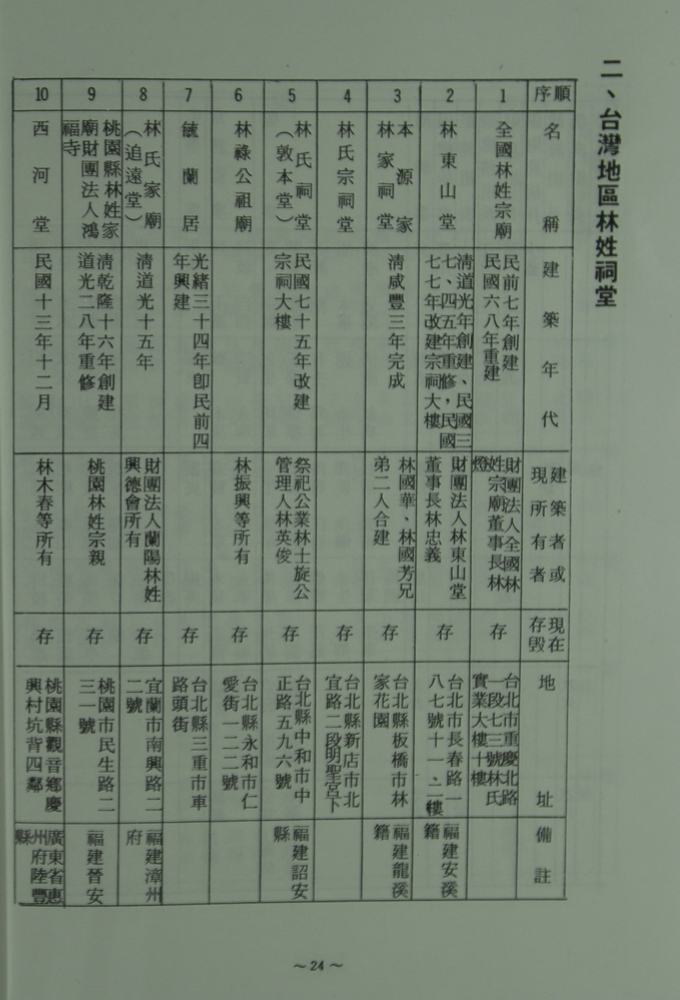 二、台灣地區林姓祠堂
順序
名稱
建築年代
建築者或
現所有者
現在
存毀
地址
備註
1
全國林姓宗廟
民前七年創建
民國六八年重建
財團法人全國林
姓宗廟董事長林
燈
存
台北市重慶北路
一段七三號林氏
實業大樓十樓
2
林東山堂
清道光年創建、民國三
七、四五年重修，民國
七七年改建宗祠大樓
財團法人林東山堂
董事長林忠義
存
台北市長春路一
八七號十一、二樓
福建安溪
籍
3
本源家
林家祠堂
清咸豐三年完成
林國華、林國芳兄
弟二人合建
存
台北縣板橋市林
家花園
福建龍溪
籍
4
林氏宗祠堂
存
台北縣新店市北
宜路二段明聖宮下
5
林氏祠堂
（敦本堂）
民國七十五年改建
宗祠大樓
祭祀公業林士旋公
管理人林英俊
存
台北縣中和市中
正路五九六號
福建詔安
縣
6
林祿公祖廟
林振興等所有
存
台北縣永和市仁
愛街一二二號
7
毓蘭居
光緒三十四年卽民前四
年興建
存
台北縣三重市車
路頭街
8
林氏家廟
（追遠堂）
清道光十五年
財團法人蘭陽林姓
興德會所有
存
宜蘭市南興路二
二號
福建漳州
府
9
桃園縣林姓家
廟財團法人鴻
福寺
清乾隆十六年創建
道光二八年重修
桃園林姓宗親
存
桃園市民生路二
三一號
福建晉安
10
西河堂
民國十三年十二月
林木春等所有
存
桃園縣觀音鄉慶
興村坑背四鄰
廣東省惠
州府陸豐
縣
～24～